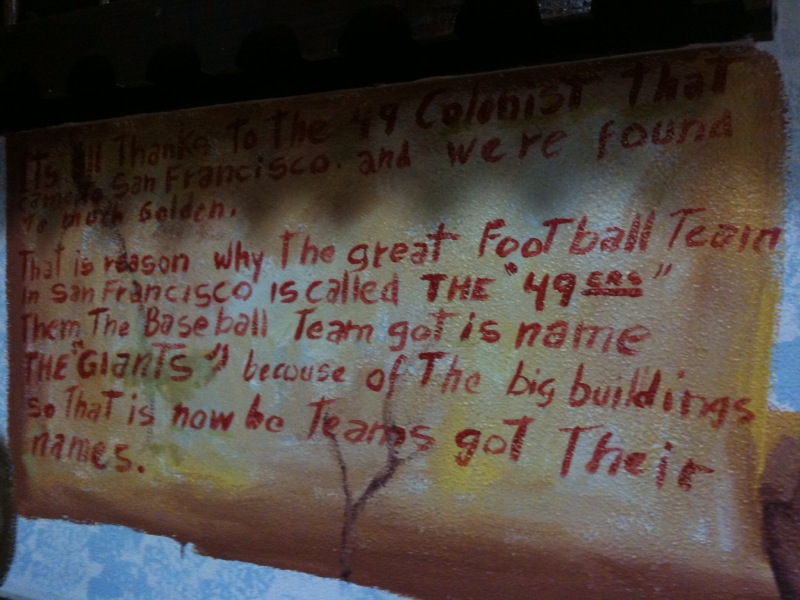 ITs All Thanks To The 49 Colonist That
came To San Francisco. and were found
To much Golden.
That is reason why The great FooTball Team
in San Francisco is called THE "49ERS"
Them The Baseball Team got is name
THE "GIANTS" becouse of The big buildings
so That is now be Teams got Their
names.